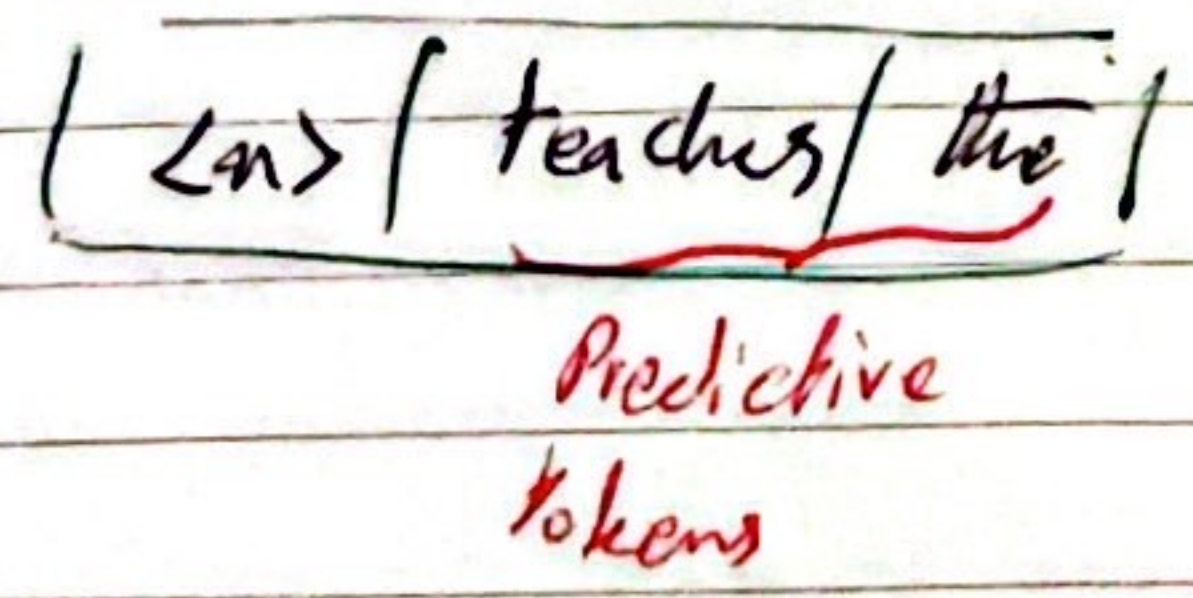 | <n> | teaches | the |
Predictive
tokens